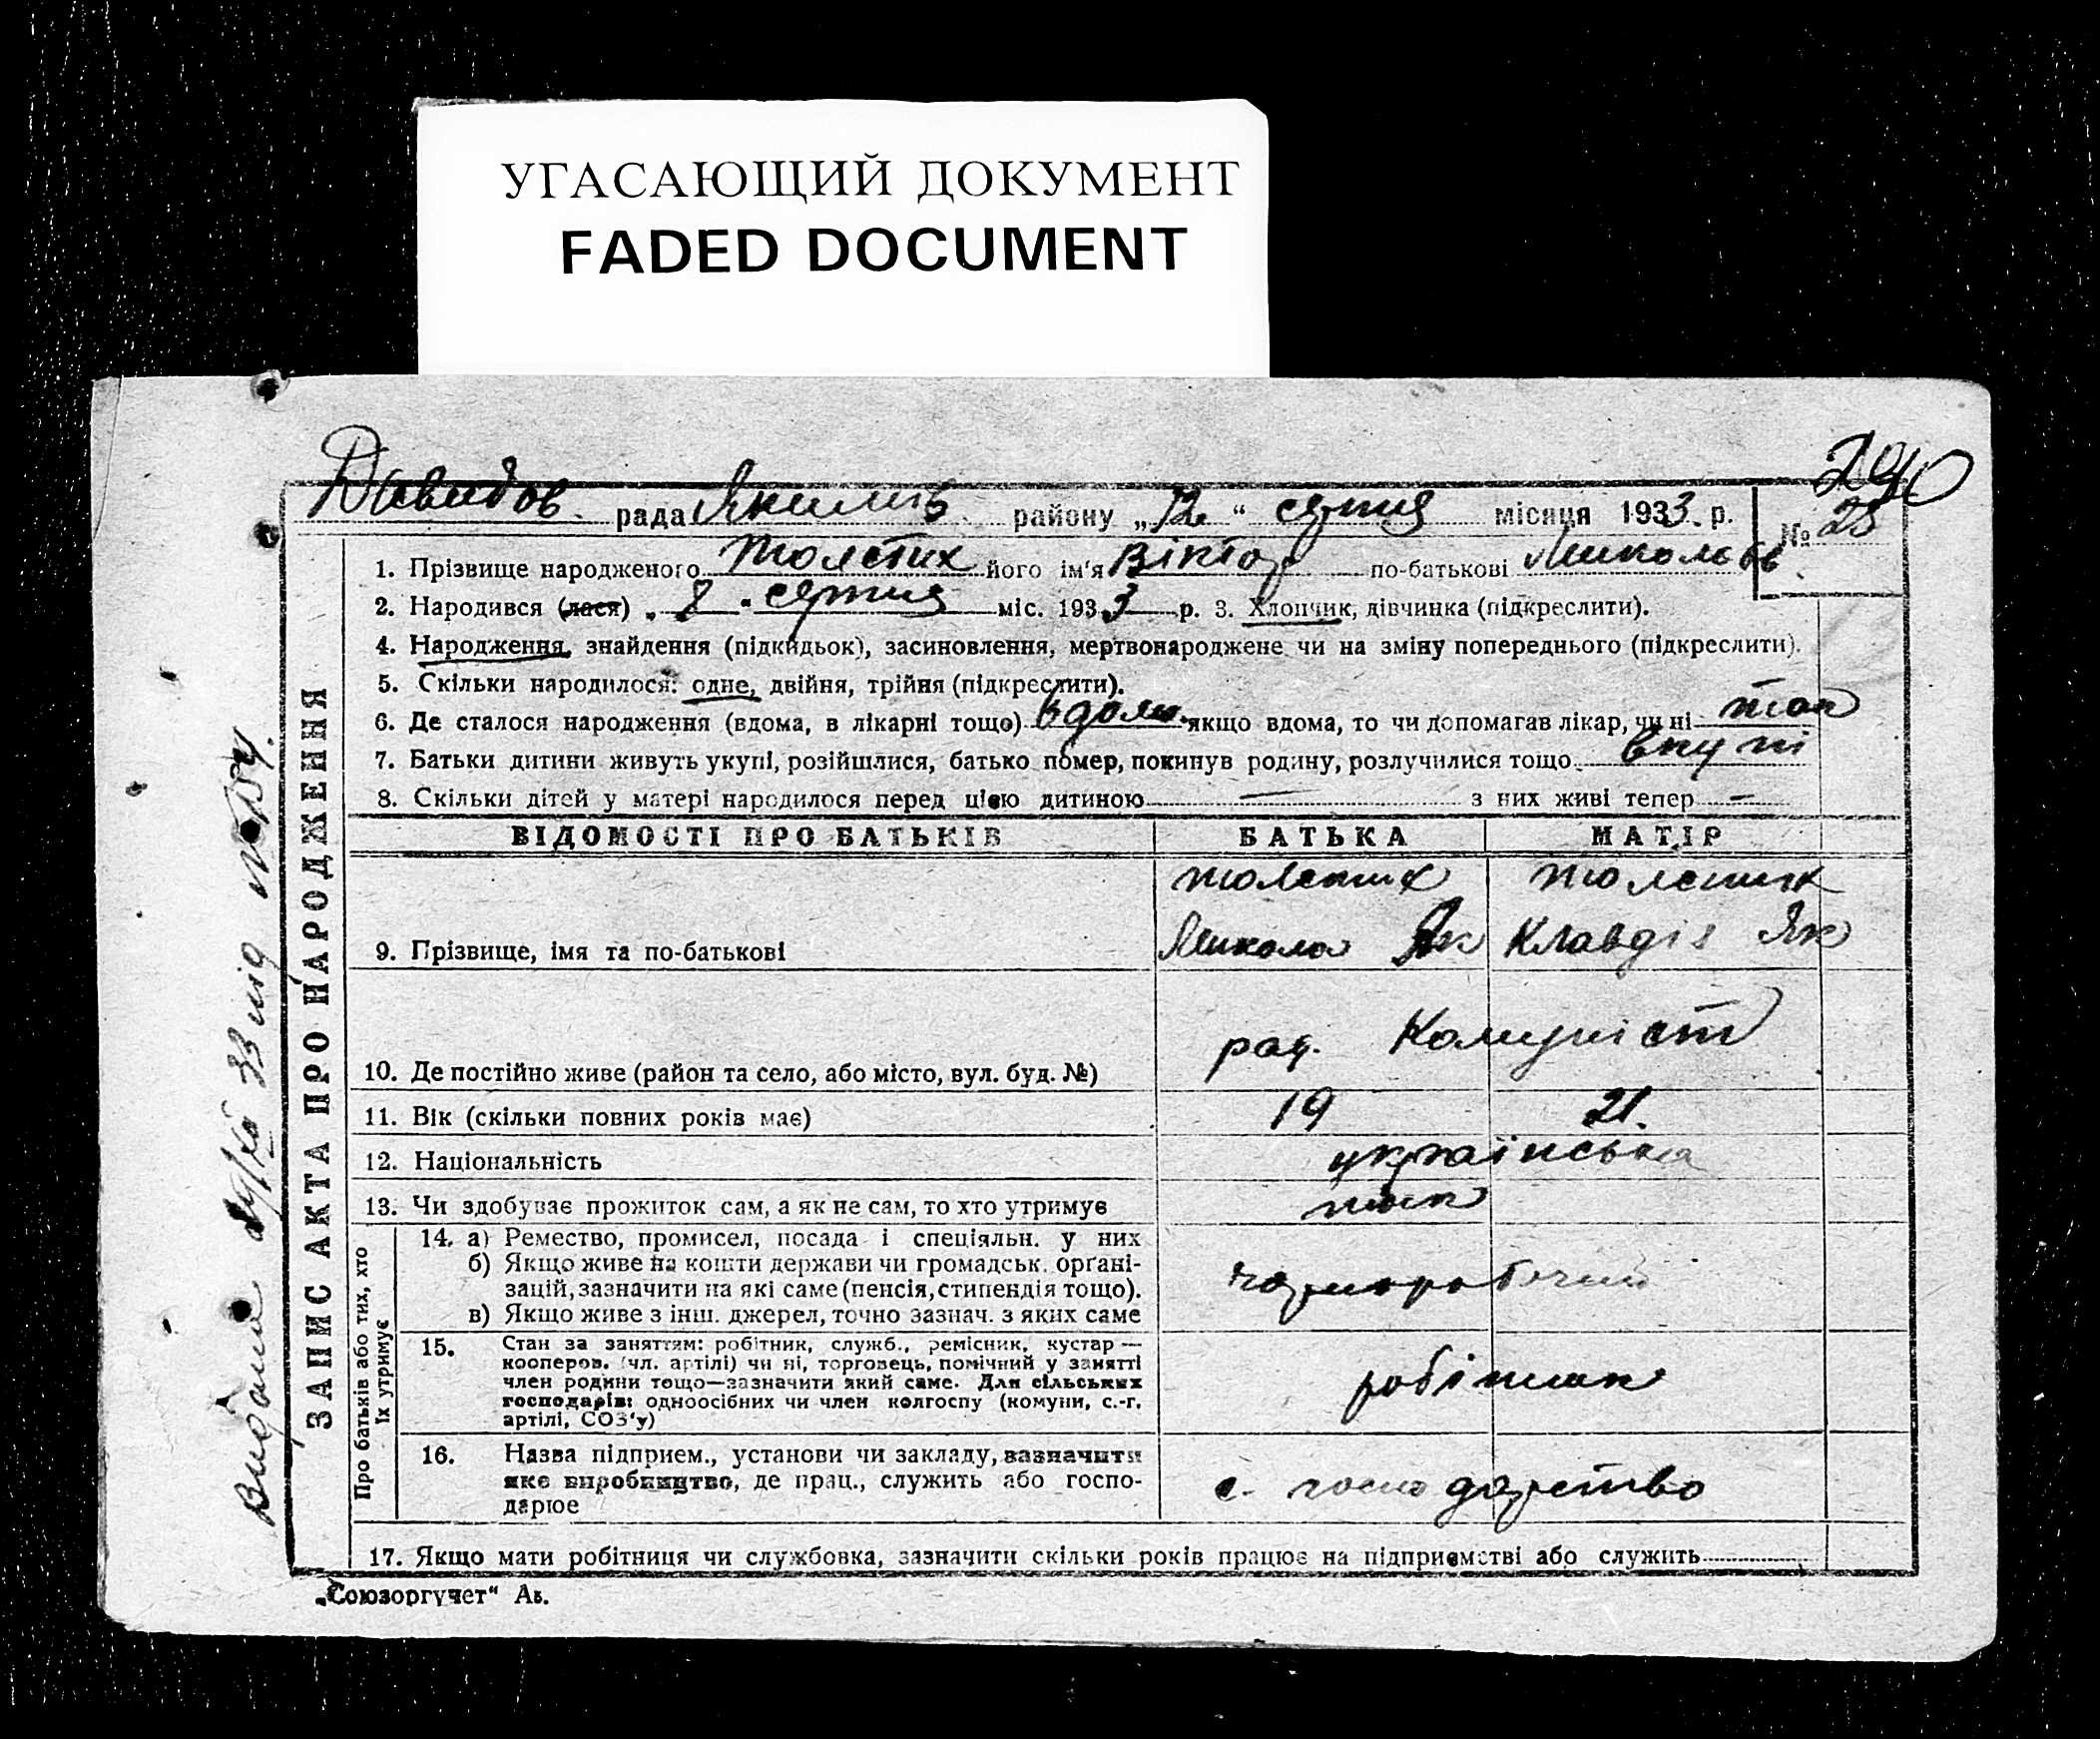 УГАСАЮЩИЙ ДОКУМЕНТ
FADED DOCUMENT
290
Давидов. рада Якимів району „12“ серпня місяця 1933. р. № 25
1. Прізвище народженого Толстих його ім'я Віктор по-батькові Миколаєв
2. Народився (лася) „8“ серпня міс. 1933 р. 3. Хлопчик, дівчинка (підкреслити).
4. Народження, знайдення (підкидьок), засиновлення, мертвонароджене чи на зміну попереднього (підкреслити).
5. Скільки народилося: одне, двійня, трійня (підкреслити).
6. Де сталося народження (вдома, в лікарні тощо) вдома якщо вдома, то чи допомагав лікар, чи ні так
7. Батьки дитини живуть укупі, розійшлися, батько помер, покинув родину, розлучилися тощо вкупі
8. Скільки дітей у матері народилося перед цією дитиною — з них живі тепер —
ЗАПИС АКТА ПРО НАРОДЖЕННЯ
ВІДОМОСТІ ПРО БАТЬКІВ БАТЬКА МАТІР
Толстих Толстих
9. Прізвище, імя та по-батькові Микола Як Клавдія Як
10. Де постійно живе (район та село, або місто, вул. буд. №) рад. Комуніст
11. Вік (скільки повних років має) 19 21.
12. Національність українська
13. Чи здобуває прожиток сам, а як не сам, то хто утримує так
Про батьків або тих, хто їх утримує
14. а) Ремество, промисел, посада і спеціяльн. у них
б) Якщо живе на кошти держави чи громадськ. органі-
зацій, зазначити на які саме (пенсія, стипендія тощо).
в) Якщо живе з інш. джерел, точно зазнач. з яких саме
чорноробочий
15. Стан за заняттям: робітник, служб., ремісник, кустар —
кооперов. (чл. артілі) чи ні, торговець, помічний у занятті
член родини тощо—зазначити який саме. Для сільських
господарів: одноосібних чи член колгоспу (комуни, с.-г.
артілі, СОЗ'у)
робітник
16. Назва підприєм., установи чи закладу, зазначити
яке виробництво, де прац., служить або госпо-
дарює
с. господарство
17. Якщо мати робітниця чи службовка, зазначити скільки років працює на підприємстві або служить
„Союзоргучет“ Ав.
Видано 33 під №